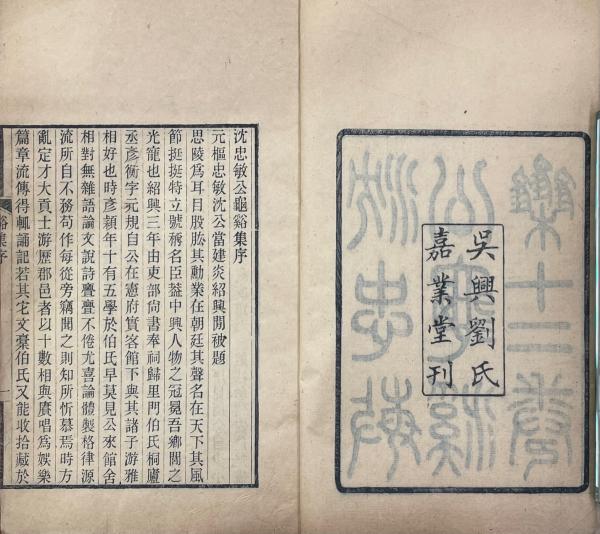 吳興劉氏
嘉業堂刊
沈忠敏公龜谿集序
元樞忠敏沈公當建炎紹興閒被題
思陵為耳目股肱其勳業在朝廷其聲名在天下其風
節挺挺特立號稱名臣葢中興人物之冠冕吾鄉閭之
光寵也紹興三年由吏部尙書奉祠歸里門伯氏桐廬
丞彥衡字元規自公在憲府賓客館下與其諸子游雅
相好也時彥穎年十有五學於伯氏早莫見公來館舍
相對無雜語論文說詩亹亹不倦尤喜論體製格律源
流所自不務苟作每從旁竊聞之則知所忻慕焉時方
亂定才大貢士游歷郡邑者以十數相與賡唱為娛樂
篇章流傳得輒誦記若其宅文棄伯氏又能收拾藏於
谿集序
一